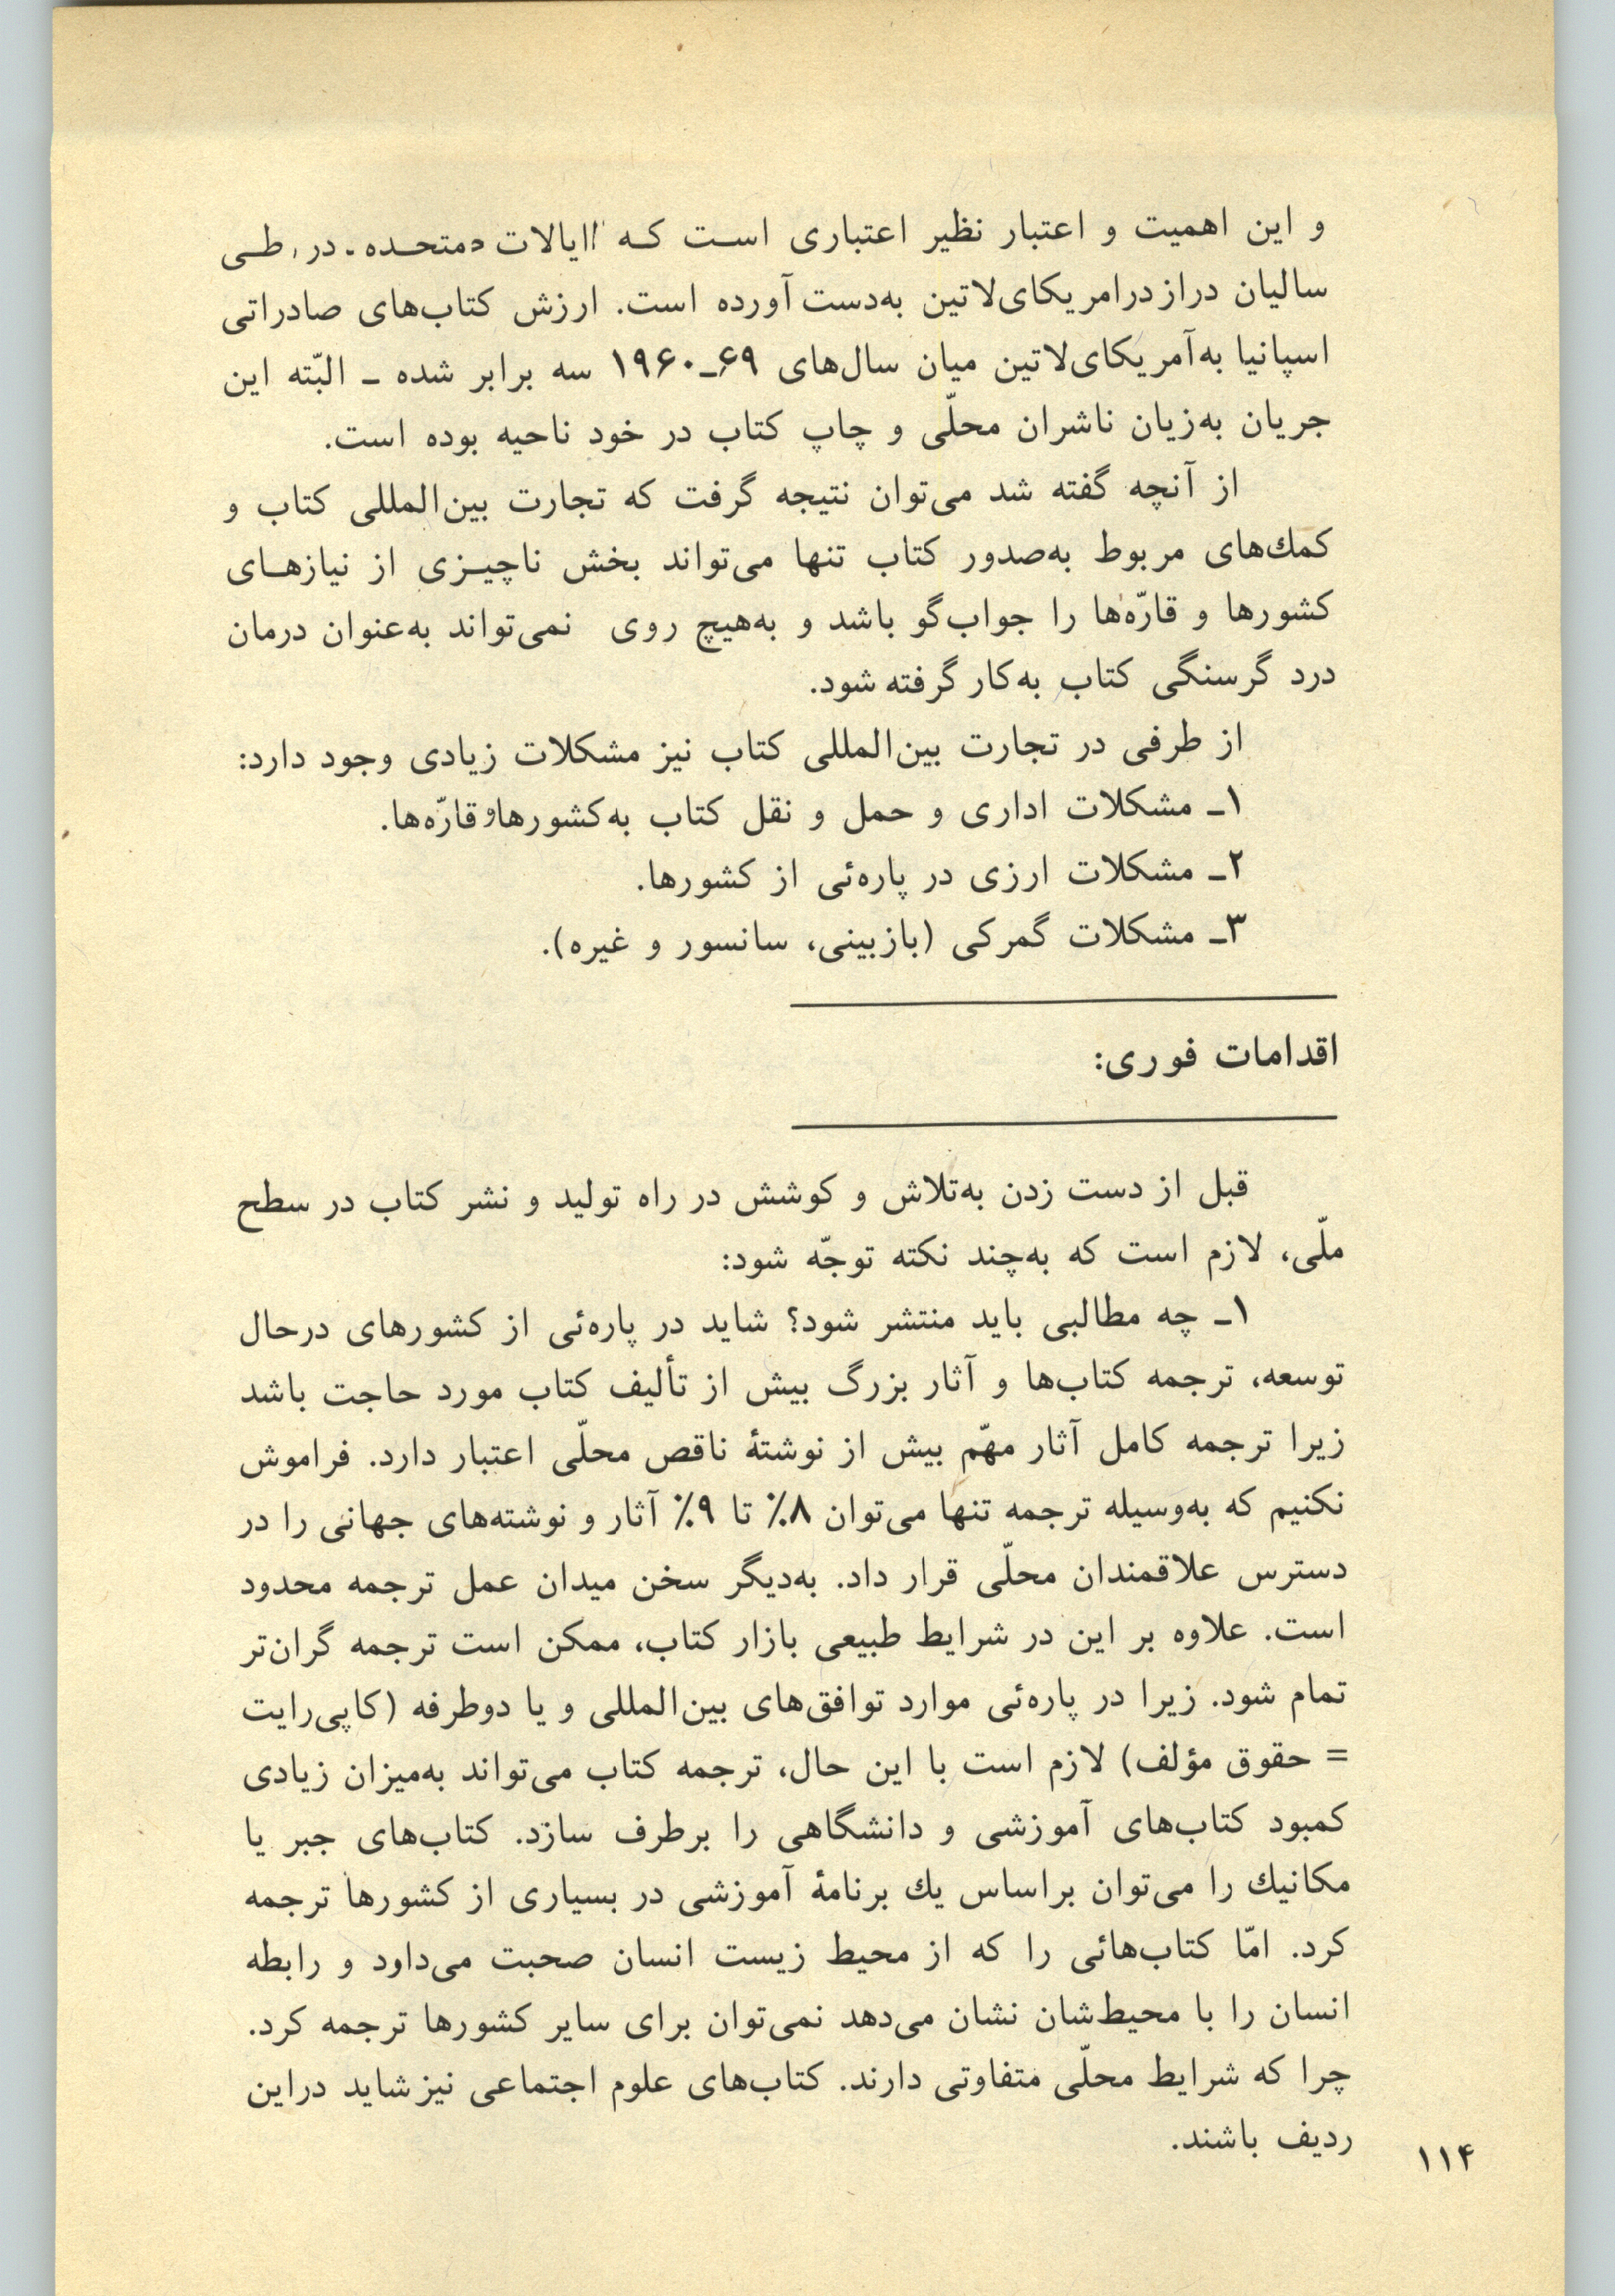 و این اهمیت و اعتبار نظیر اعتباری است که ایالات متحده در طی
سالیان دراز درامریکای‌لاتین به‌دست آورده است. ارزش کتاب‌های صادراتی
اسپانیا به‌آمریکای‌لاتین میان سال‌های ۶۹ـ۱۹۶۰ سه برابر شده ـ البّته این
جریان به‌زیان ناشران محلّی و چاپ کتاب در خود ناحیه بوده است.
از آنچه گفته شد می‌توان نتیجه گرفت که تجارت بین‌المللی کتاب و
كمك‌های مربوط به‌صدور کتاب تنها می‌تواند بخش ناچیزی از نیازهای
کشورها و قارّه‌ها را جواب‌گو باشد و به‌هیچ روی نمی‌تواند به‌عنوان درمان
درد گرسنگی کتاب به‌کار گرفته شود.
از طرفی در تجارت بین‌المللی کتاب نیز مشکلات زیادی وجود دارد:
۱ـ مشکلات اداری و حمل و نقل کتاب به‌کشورها و قارّه‌ها.
۲ـ مشکلات ارزی در پاره‌ئی از کشورها.
۳ـ مشکلات گمرکی (بازبینی، سانسور و غیره).
اقدامات فوری:
قبل از دست زدن به‌تلاش و کوشش در راه تولید و نشر کتاب در سطح
ملّی، لازم است که به‌چند نکته توجّه شود:
۱ـ چه مطالبی باید منتشر شود؟ شاید در پاره‌ئی از کشورهای درحال
توسعه، ترجمه کتاب‌ها و آثار بزرگ بیش از تألیف کتاب مورد حاجت باشد
زیرا ترجمه کامل آثار مهّم بیش از نوشتهٔ ناقص محلّی اعتبار دارد. فراموش
نکنیم که به‌وسیله ترجمه تنها می‌توان ۸٪ تا ۹٪ آثار و نوشته‌های جهانی را در
دسترس علاقمندان محلّی قرار داد. به‌دیگر سخن میدان عمل ترجمه محدود
است. علاوه بر این در شرایط طبیعی بازار کتاب، ممکن است ترجمه گران‌تر
تمام شود. زیرا در پاره‌ئی موارد توافق‌های بین‌المللی و یا دوطرفه (کاپی‌رایت
= حقوق مؤلف) لازم است با این حال، ترجمه کتاب می‌تواند به‌میزان زیادی
کمبود کتاب‌های آموزشی و دانشگاهی را برطرف سازد. کتاب‌های جبر یا
مکانیك را می‌توان براساس یك برنامهٔ آموزشی در بسیاری از کشورها ترجمه
کرد. امّا کتاب‌هائی را که از محیط زیست انسان صحبت می‌داود و رابطه
انسان را با محیط‌شان نشان می‌دهد نمی‌توان برای سایر کشورها ترجمه کرد.
چرا که شرایط محلّی متفاوتی دارند. کتاب‌های علوم اجتماعی نیز شاید دراین
ردیف باشند.
۱۱۴